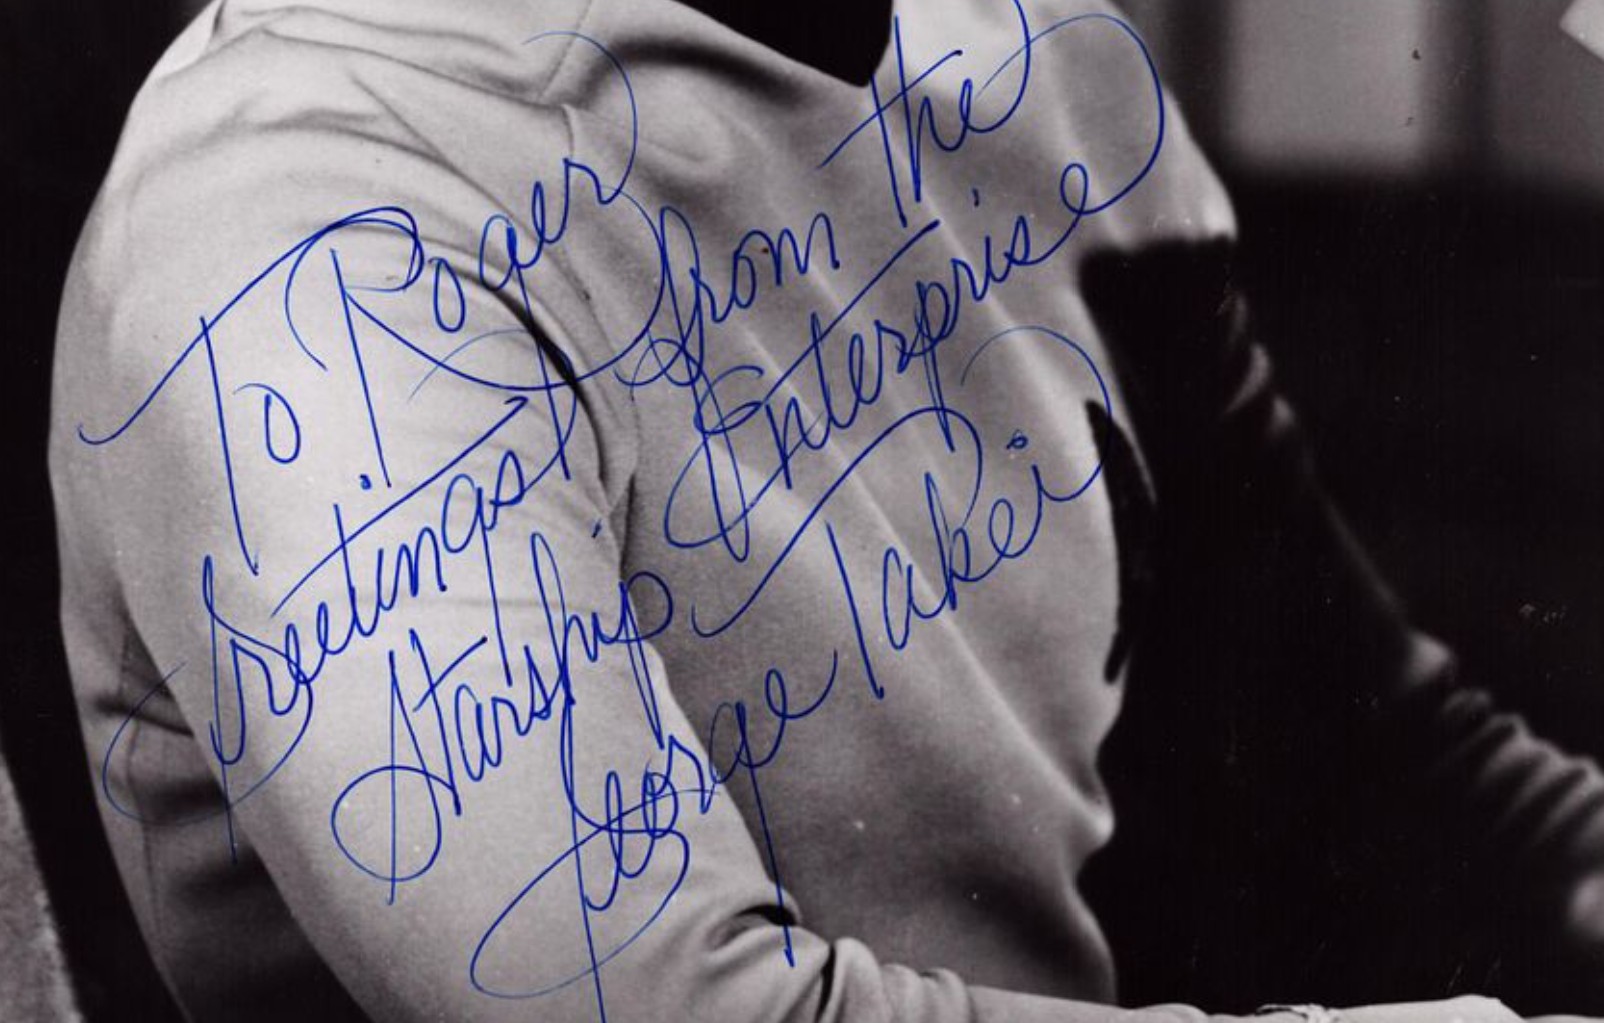 To Roger
Greetings from the
Starship Enterprise
George Takei